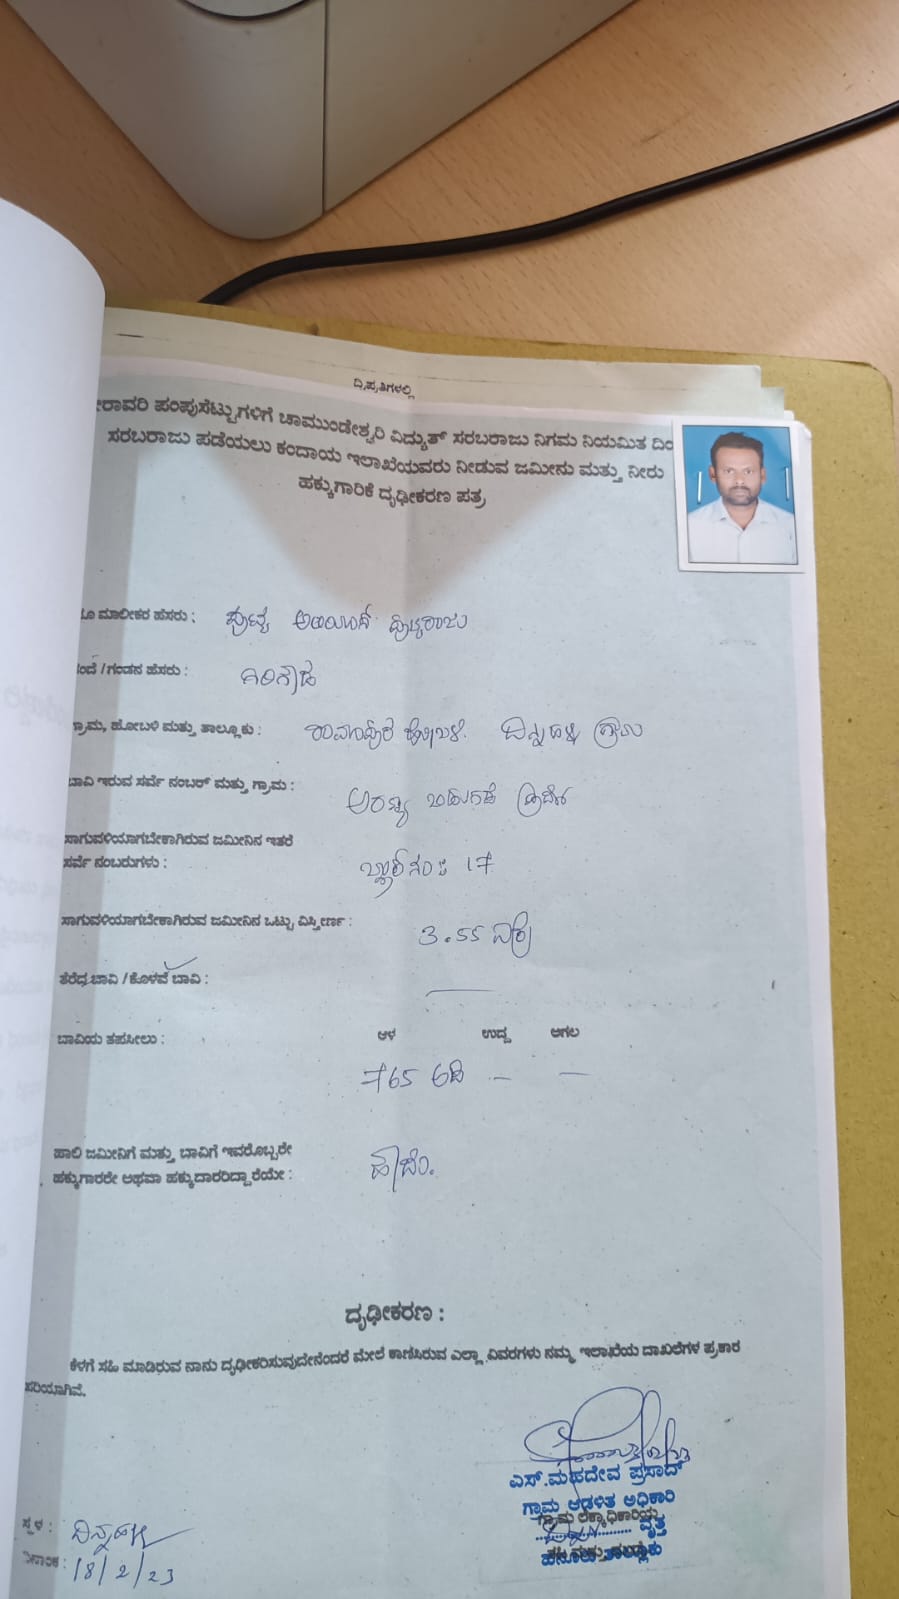 ದ್ವಿಪ್ರತಿಗಳಲ್ಲಿ
ರಾವರಿ ಪಂಪುಸೆಟ್ಟುಗಳಿಗೆ ಚಾಮುಂಡೇಶ್ವರಿ ವಿದ್ಯುತ್ ಸರಬರಾಜು ನಿಗಮ ನಿಯಮಿತ ದಿಂ
ಸರಬರಾಜು ಪಡೆಯಲು ಕಂದಾಯ ಇಲಾಖೆಯವರು ನೀಡುವ ಜಮೀನು ಮತ್ತು ನೀರು
ಹಕ್ಕುಗಾರಿಕೆ ದೃಢೀಕರಣ ಪತ್ರ
ಮಾಲೀಕರ ಹೆಸರು :
ಂದೆ / ಗಂಡನ ಹೆಸರು : ಗಿರಿಗೌಡ
ಗ್ರಾಮ, ಹೋಬಳಿ ಮತ್ತು ತಾಲ್ಲೂಕು : ರಾಮಾಪುರ ಹೋಬಳಿ. ದಿನ್ನಹಳ್ಳಿ ಗ್ರಾಮ
ಬಾವಿ ಇರುವ ಸರ್ವೆ ನಂಬರ್ ಮತ್ತು ಗ್ರಾಮ : ಅರಣ್ಯ
ಸಾಗುವಳಿಯಾಗಬೇಕಾಗಿರುವ ಜಮೀನಿನ ಇತರೆ
ಸರ್ವೆ ನಂಬರುಗಳು : 17
ಸಾಗುವಳಿಯಾಗಬೇಕಾಗಿರುವ ಜಮೀನಿನ ಒಟ್ಟು ವಿಸ್ತೀರ್ಣ : 3.55 ಎಕ್ರೆ
ತೆರೆದ ಬಾವಿ / ಕೊಳವೆ ಬಾವಿ :
ಬಾವಿಯ ತಪಸೀಲು : ಆಳ ಉದ್ದ ಅಗಲ
765 ಅಡಿ — —
ಹಾಲಿ ಜಮೀನಿಗೆ ಮತ್ತು ಬಾವಿಗೆ ಇವರೊಬ್ಬರೇ
ಹಕ್ಕುಗಾರರೇ ಅಥವಾ ಹಕ್ಕುದಾರರಿದ್ದಾರೆಯೇ : ಹೌದು.
ದೃಢೀಕರಣ :
ಕೆಳಗೆ ಸಹಿ ಮಾಡಿರುವ ನಾನು ದೃಢೀಕರಿಸುವುದೇನೆಂದರೆ ಮೇಲೆ ಕಾಣಿಸಿರುವ ಎಲ್ಲಾ ವಿವರಗಳು ನಮ್ಮ ಇಲಾಖೆಯ ದಾಖಲೆಗಳ ಪ್ರಕಾರ
ಸರಿಯಾಗಿವೆ.
ಎಸ್.ಮಹದೇವ ಪ್ರಸಾದ್
ಗ್ರಾಮ ಆಡಳಿತ ಅಧಿಕಾರಿ
ಗ್ರಾಮ ಲೆಕ್ಕಾಧಿಕಾರಿಯ
ವೃತ್ತ
ಸ್ಥಳ : ದಿನ್ನಹಳ್ಳಿ
ದಿನಾಂಕ : 18/2/23